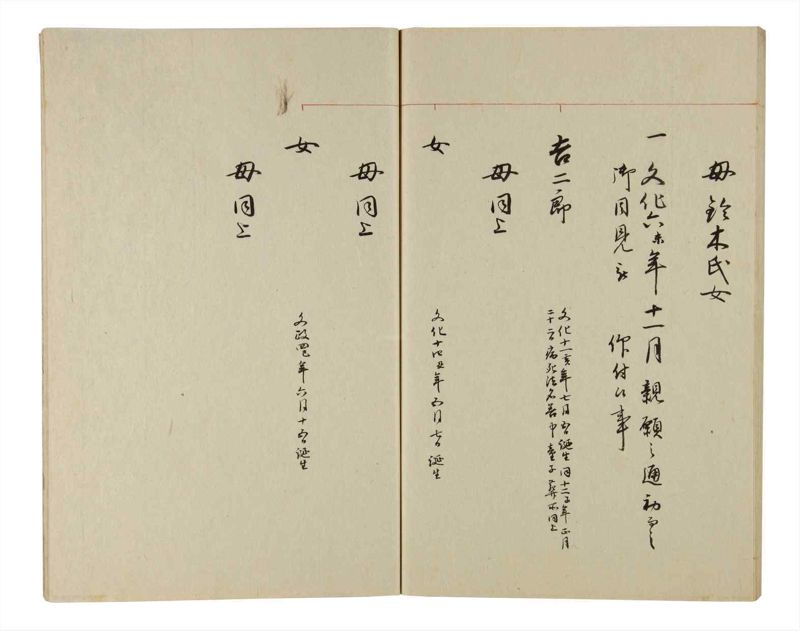 母鈴木氏女
一文化六未年十一月親願之通初而之
御目見被 仰付候事
吉二郎
文化十二亥年七月 誕生同十三子年正月
二十二日病死法名善中童子葬所同上
母同上
女
文化十四丑年 月 誕生
母同上
女
文政四巳年六月十 日誕生
母同上